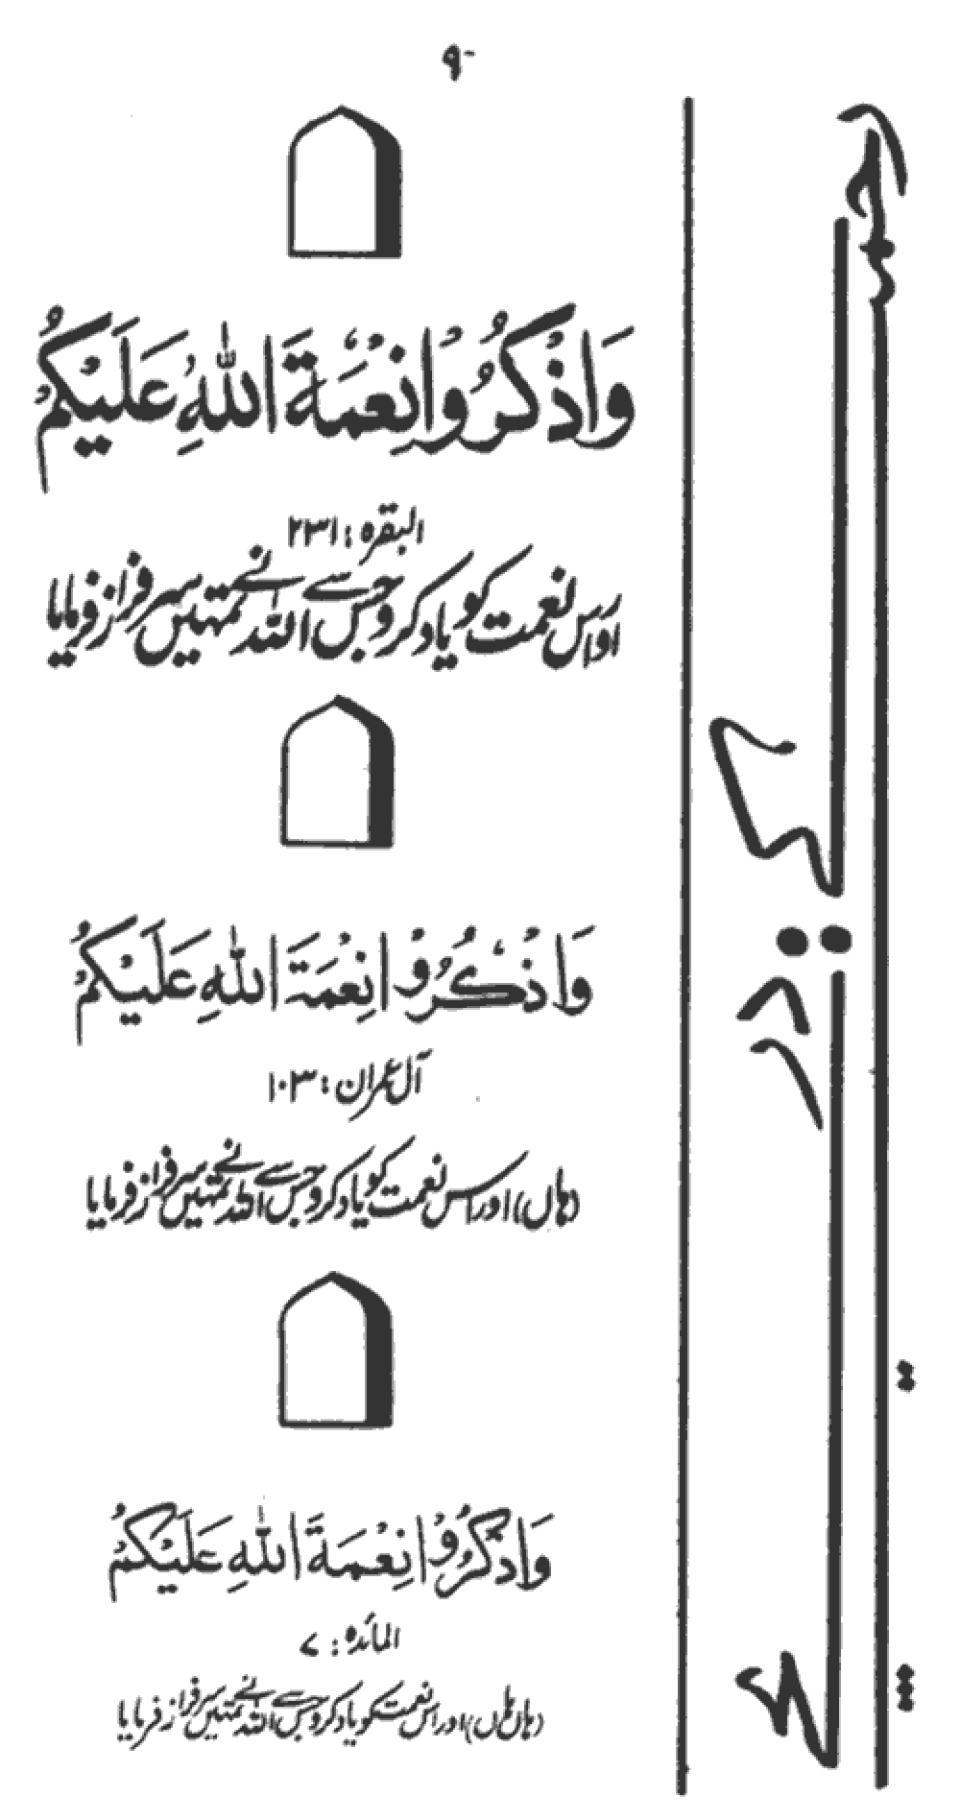 ۹-
وَاذْكُرُوْا نِعْمَةَ اللّٰهِ عَلَيْكُمْ
البقرہ : ۲۳۱
اور اس نعمت کو یاد کرو جس سے اللہ نے تمہیں سرفراز فرمایا
وَاذْكُرُوْا نِعْمَةَ اللّٰهِ عَلَيْكُمْ
آل عمران : ۱۰۳
(ہاں) اور اس نعمت کو یاد کرو جس سے اللہ نے تمہیں سرفراز فرمایا
وَاذْكُرُوْا نِعْمَةَ اللّٰهِ عَلَيْكُمْ
المائدہ : ۷
(ہاں ہاں) اور اس نعمت کو یاد کرو جس سے اللہ نے تمہیں سرفراز فرمایا